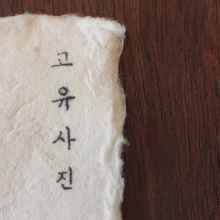 고유사진